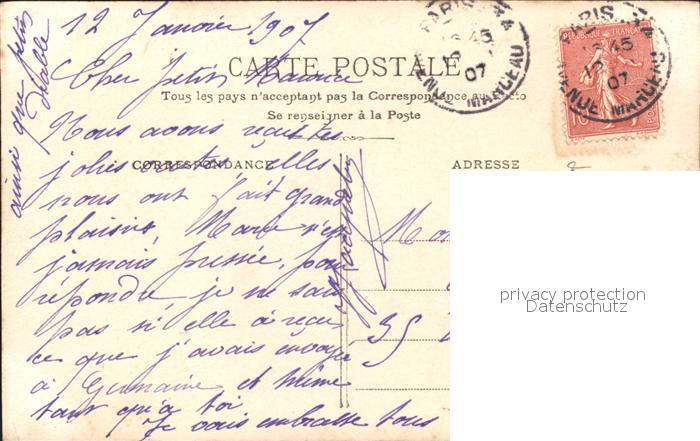 12 Janvier 1907
Cher petit Maurice
CARTE POSTALE
Tous les pays n'acceptant pas la Correspondance au recto
Se renseigner à la Poste
Nous avons reçu tes
jolies cartes elles
CORRESPONDANCE
ADRESSE
nous ont fait grand
plaisir, Marie n'est
jamais pressée, pour
répondre, je ne sais
pas si elle à reçu
ce que j'avais envoyé
à Germaine et même
tant qu'à toi
Je vais embrasse tous
ainsi que petit
diable
35
PARIS
15 45
07
AVENUE MARCEAU
REPUBLIQUE FRANÇAISE
10
PARIS
15 45
07
AVENUE MARCEAU
privacy protection
Datenschutz